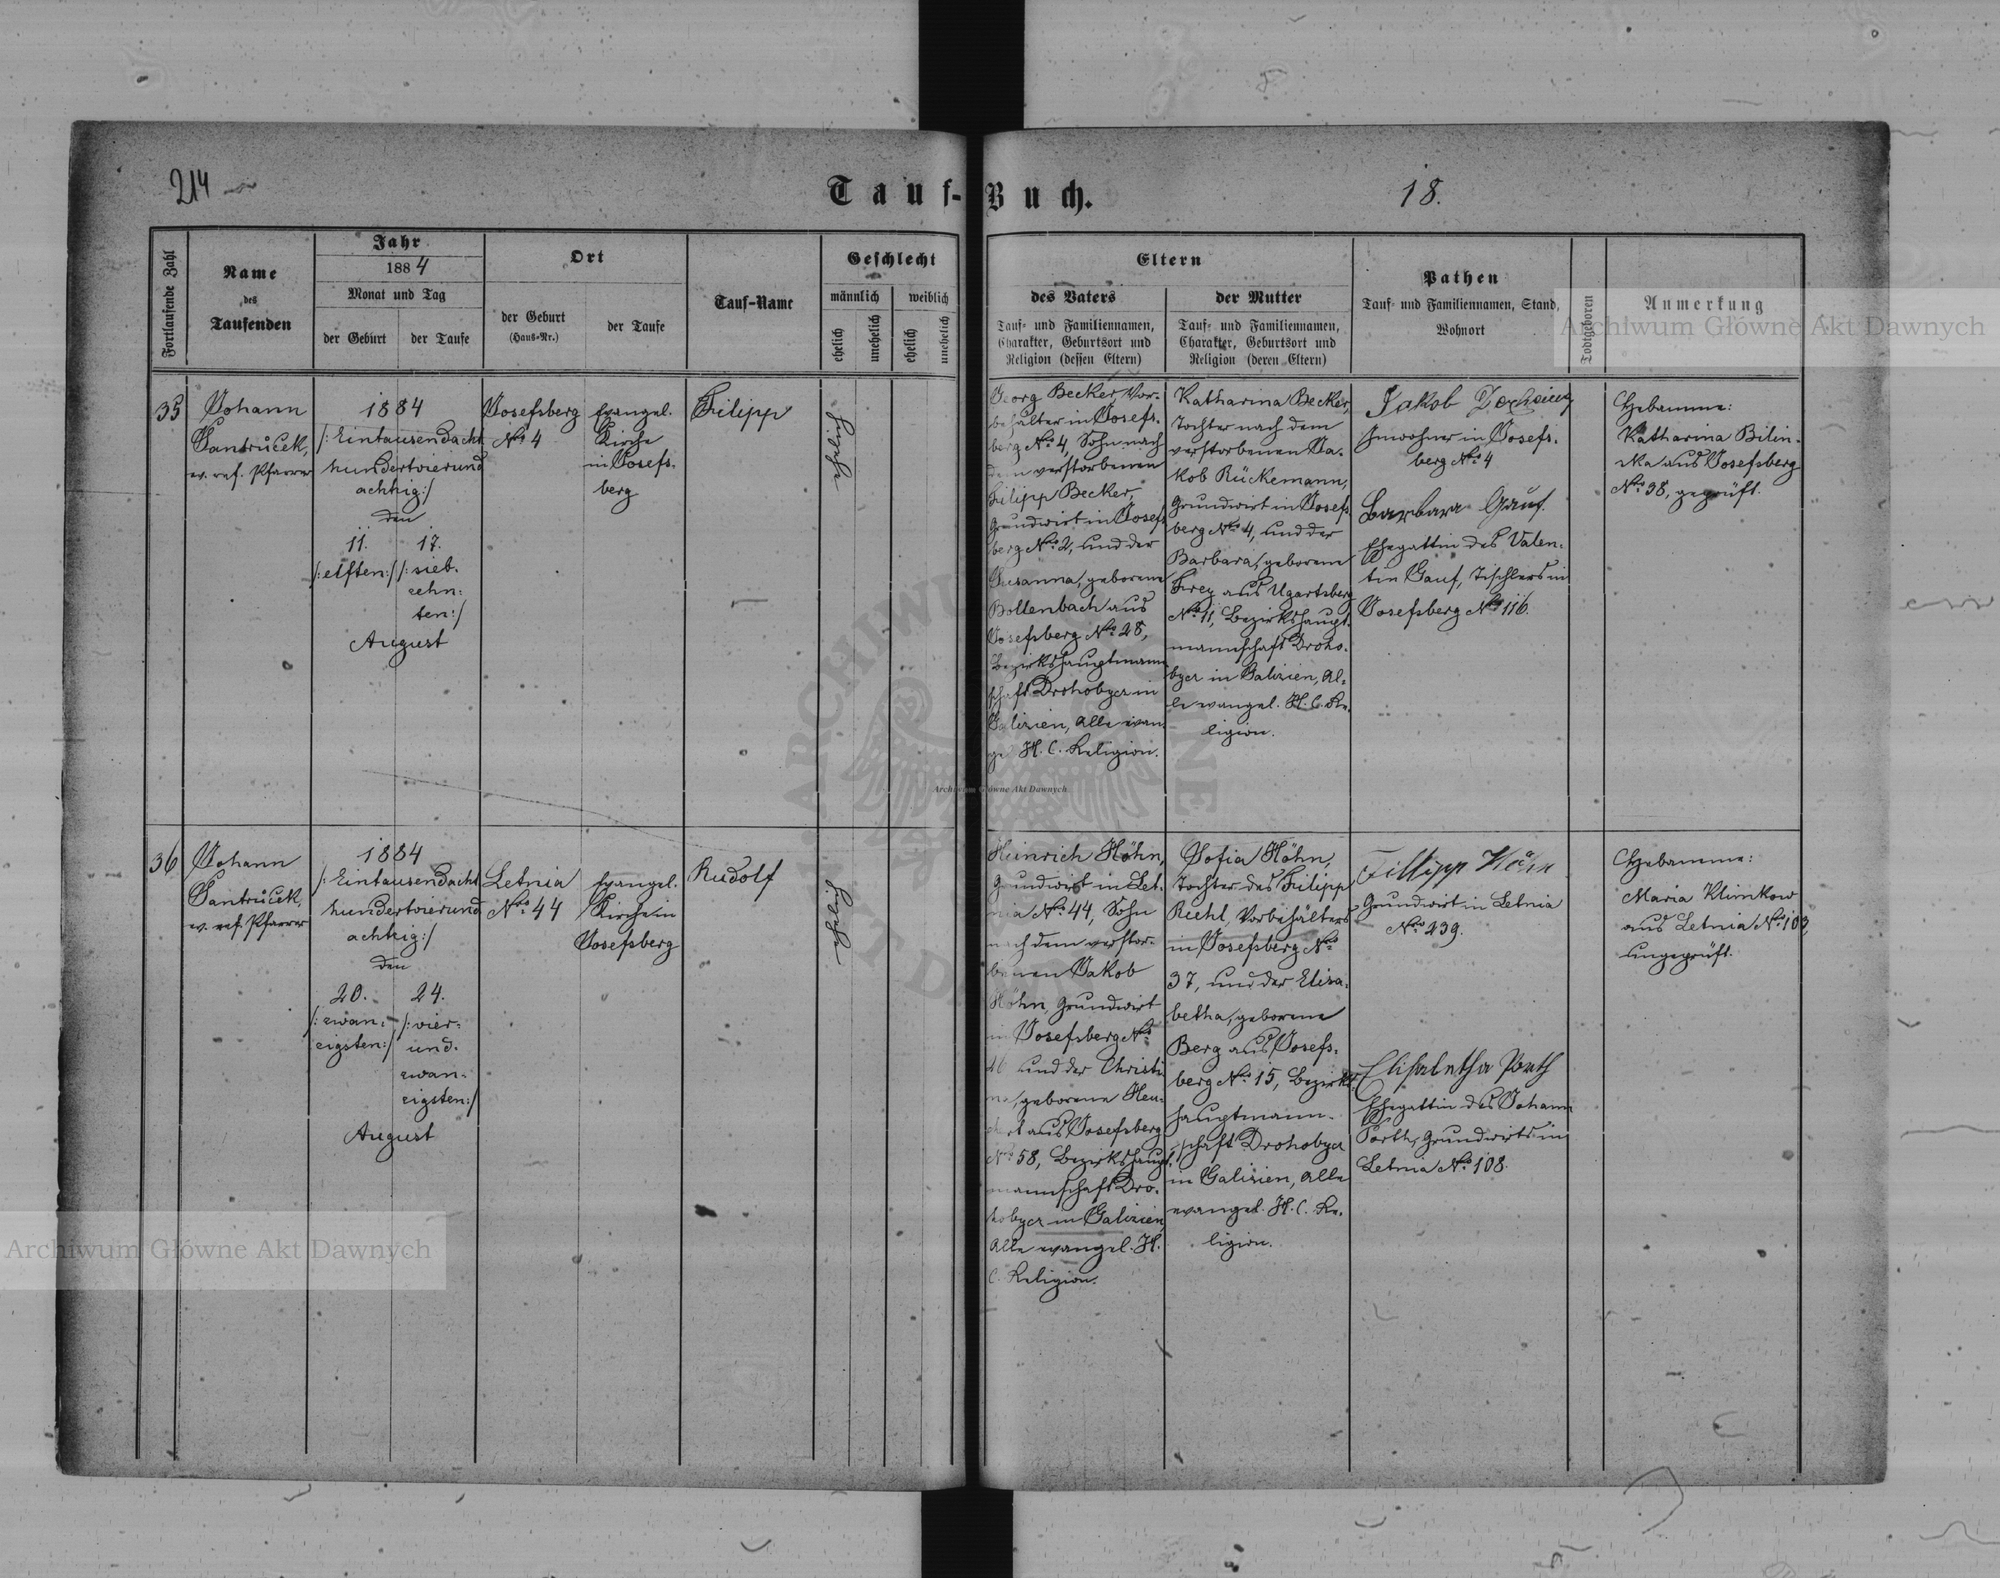 214
Tauf-Buch.
18.
Fortlaufende Zahl
Name
des
Taufenden
Jahr
1884
Monat und Tag
der Geburt
der Taufe
Ort
der Geburt
(Haus-Nr.)
der Taufe
Tauf-Name
Geschlecht
männlich
weiblich
ehelich
unehelich
ehelich
unehelich
Eltern
des Vaters
Tauf- und Familiennamen,
Charakter, Geburtsort und
Religion (dessen Eltern)
der Mutter
Tauf- und Familiennamen,
Charakter, Geburtsort und
Religion (deren Eltern)
Pathen
Tauf- und Familiennamen, Stand,
Wohnort
Todtgeboren
Anmerkung
35
Johann
Santrůček,
ev. ref. Pfarrer
1884
/:Eintausendacht
hundertvierund
achtzig:/
den
11.
/:elften:/
17.
/:sieb-
zehn-
ten:/
August
Josefsberg
No 4
Evangel.
Kirche
in Josefs-
berg
Filipp
ehelich
Georg Becker, Vor-
behälter in Josefs-
berg No 4, Sohn nach
dem verstorbenen
Filipp Becker,
Grundwirt in Josefs
berg No 2, und der
Susanna, geborene
Bollenbach aus
Josefsberg No 28,
Bezirkshauptmann
schaft Drohobycz in
Galizien, Alle evan
gel. H. C. Religion.
Katharina Becker,
Tochter nach dem
verstorbenen Ja-
kob Rückemann,
Grundwirt in Josefs
berg No 4, und der
Barbara, geborene
Frey aus Ugartsberg
No 11, Bezirkshaupt
mannschaft Droho-
bycz in Galizien, Al-
le evangel. H. C. Re-
ligion.
Jakob
Inwohner in Josefs-
berg No 4
Barbara Gauf.
Ehegattin des Valen-
tin Gauf, Tischlers in
Josefsberg No 116.
Hebamme:
Katharina Bilin-
ska aus Josefsberg
No 38, geprüft.
36
Johann
Santrůček,
ev. ref. Pfarrer
1884
/:Eintausendacht
hundertvierund
achtzig:/
den
20.
/:zwan-
zigsten:/
24.
/:vier-
und-
zwan-
zigsten:/
August
Letnia
No 44
Evangel.
Kirche in
Josefsberg
Rudolf
ehelich
Heinrich Höhn,
Grundwirt in Let-
nia No 44, Sohn
nach dem verstor-
benen Jakob
Höhn, Grundwirt
in Josefsberg No
46 und der Christi
na, geborene
aus Josefsberg
No 58, Bezirkshaupt-
mannschaft Dro-
hobycz in Galizien,
Alle evangel. H.
C. Religion.
Sofia Höhn,
Tochter des Filipp
Riehl, Vorbehälters
in Josefsberg No
37, und der Elisa-
betha, geborene
Berg aus Josefs-
berg No 15, Bezirks
hauptmann-
schaft Drohobycz
in Galizien, Alle
evangel. H. C. Re-
ligion.
Fillipp Höhn
Grundwirt in Letnia
No 239.
Elisabetha Porth
Ehegattin des Johann
Porth, Grundwirts in
Letnia No 108.
Hebamme:
Maria Klimkow
aus Letnia No 103,
ungeprüft.
Archiwum Główne Akt Dawnych
Archiwum Główne Akt Dawnych
Archiwum Główne Akt Dawnych
ARCHIWUM GŁÓWNE AKT DAWNYCH